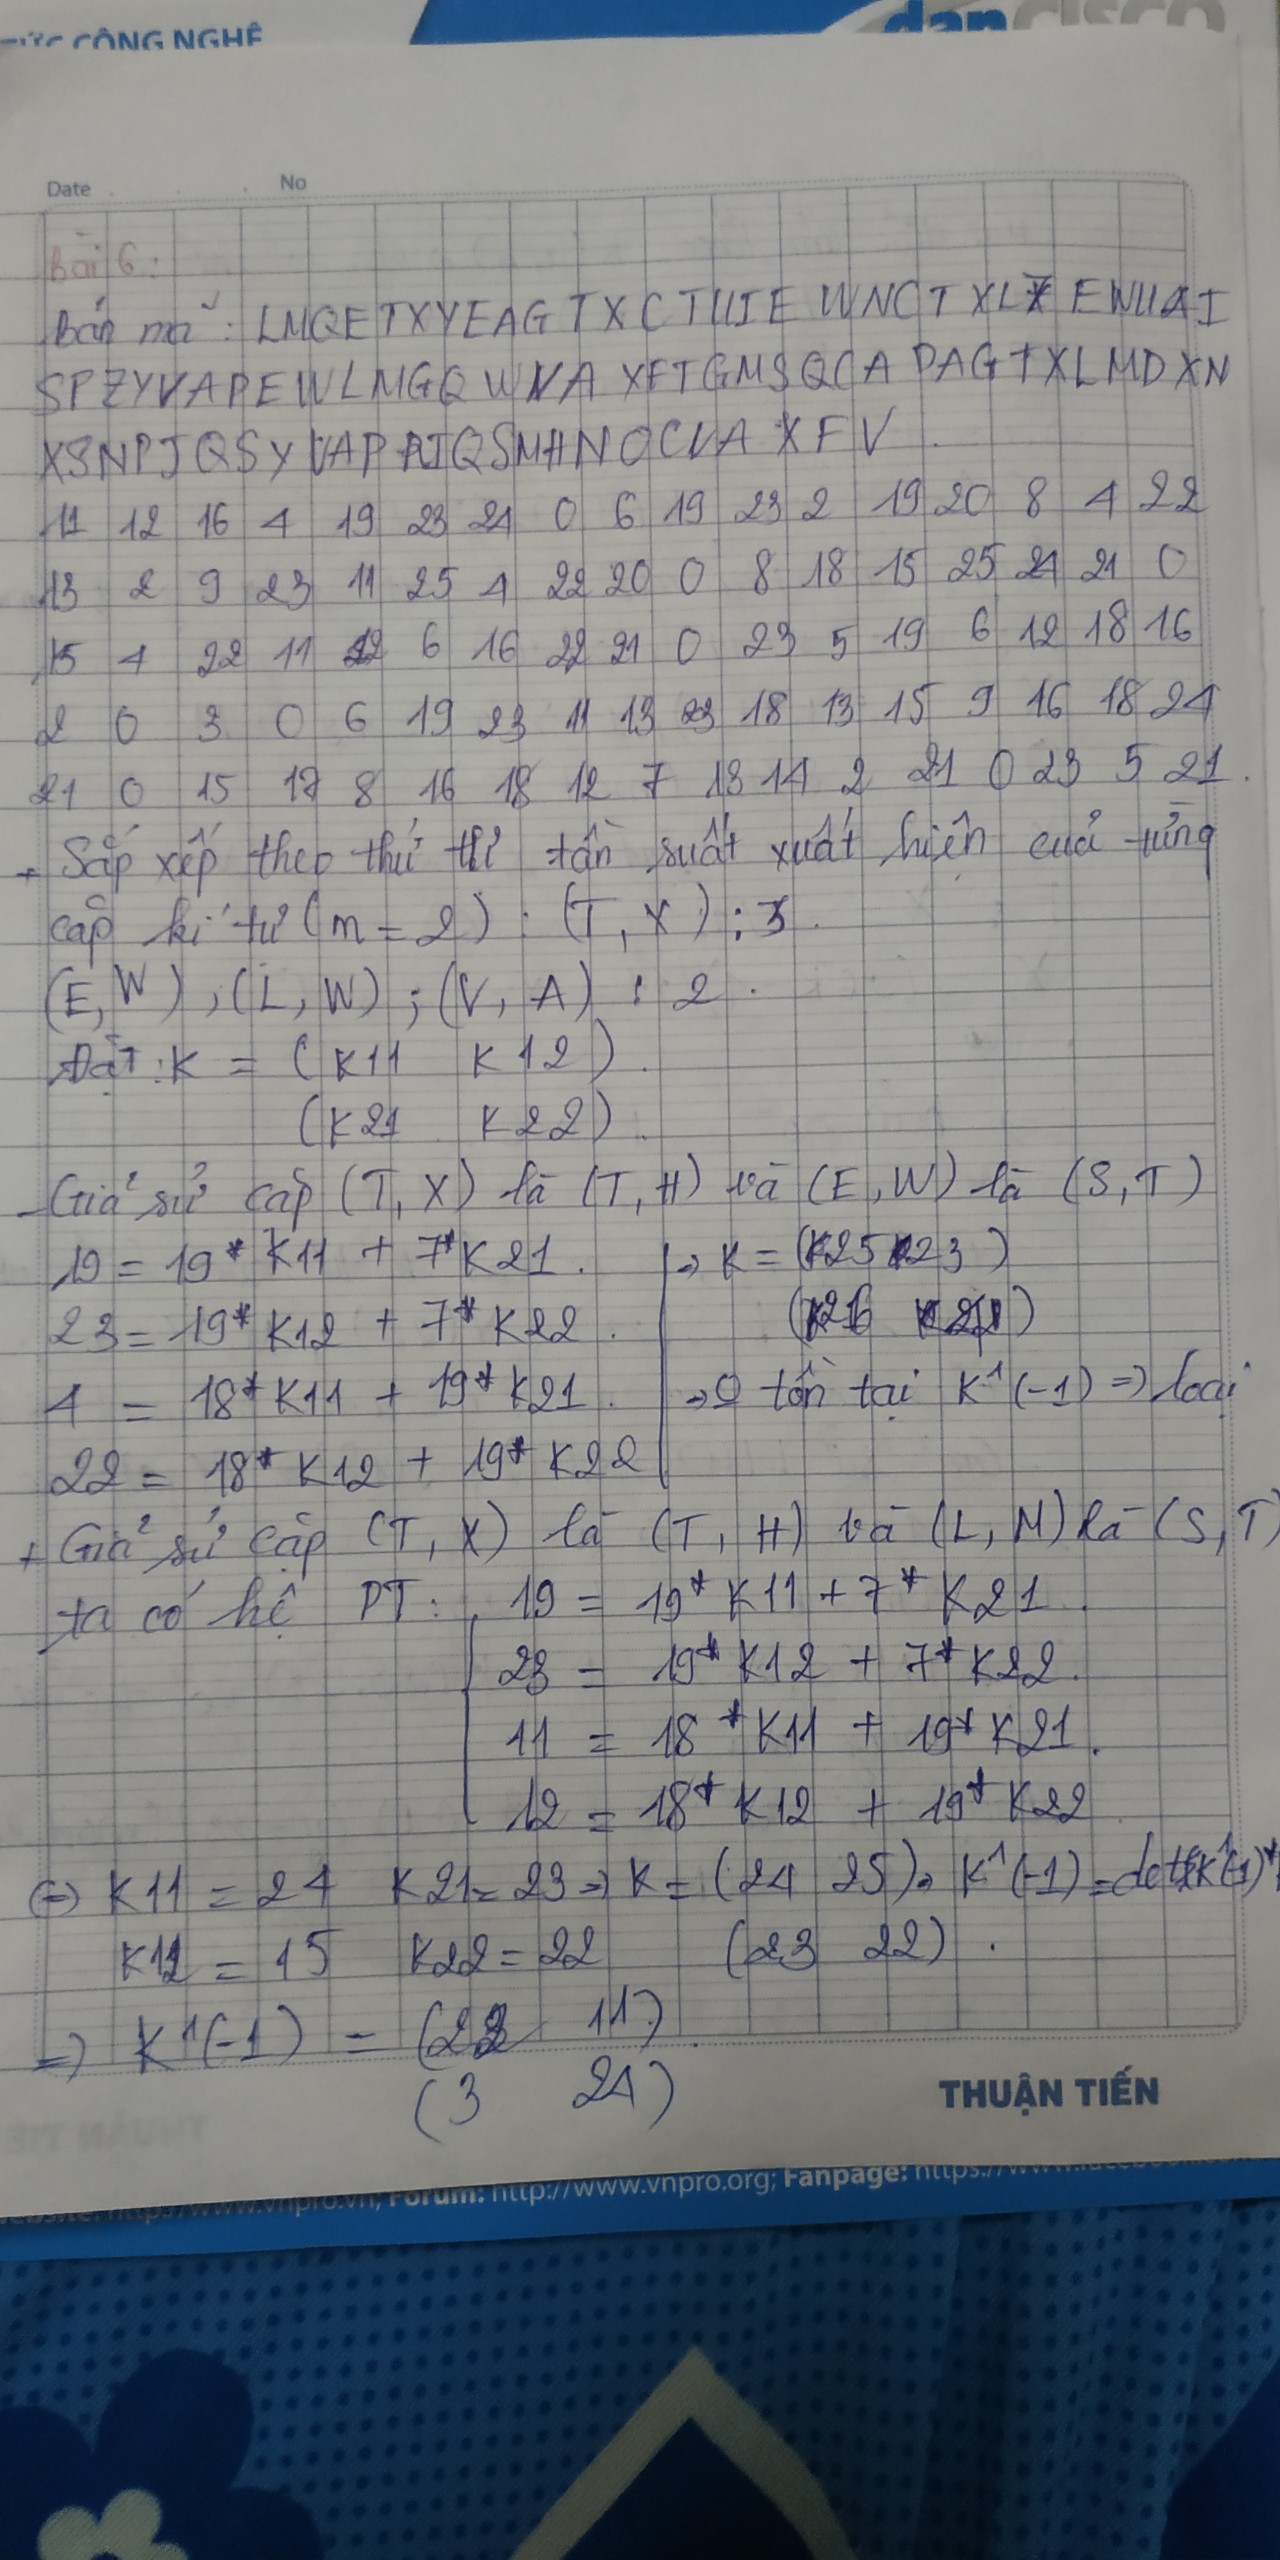 CÔNG NGHỆ
Date No
Bài 6:
Bản mã: LMQETXYEAGTXCTUIEWNCTXLZEWUAI
SPZYVAPEWLMGQWVAXFTGMSQCADAGTXLMDXN
XSNPJQSYVAPRIQSMHNOCVAXFV
11 12 16 4 19 23 24 0 6 19 23 2 19 20 8 4 22
13 2 9 23 11 25 4 22 20 0 8 18 15 25 24 21 0
15 4 22 11 12 6 16 22 21 0 23 5 19 6 12 18 16
2 0 3 0 6 19 23 11 13 23 18 13 15 9 16 18 24
21 0 15 17 8 16 18 12 7 13 14 2 21 0 23 5 21.
+ Sắp xếp theo thứ tự tần suất xuất hiện của từng
cặp kí tự (m = 2) : (T, X) : 3.
(E, W), (L, W) ; (V, A) : 2.
Đặt: K = (K11 K12).
(K21 K22).
- Giả sử cặp (T, X) là (T, H) và (E, W) là (S, T)
19 = 19* K11 + 7* K21. → K = (K25 K23)
23 = 19* K12 + 7* K22.
4 = 18* K11 + 19* K21. → tồn tại K^(-1) => loại
22 = 18* K12 + 19* K22
+ Giả sử cặp (T, X) là (T, H) và (L, M) là (S, T)
ta có hệ PT: 19 = 19* K11 + 7* K21.
23 = 19* K12 + 7* K22.
11 = 18* K11 + 19* K21.
12 = 18* K12 + 19* K22
(=) K11 = 24 K21 = 23 → K = (24 25) K^(-1) = det(K^(-1)*
K12 = 15 K22 = 22 (23 22).
=) K^(-1) = (22 11).
(3 24)
THUẬN TIẾN
http://www.vnpro.vn; Forum: http://www.vnpro.org; Fanpage: https://www.